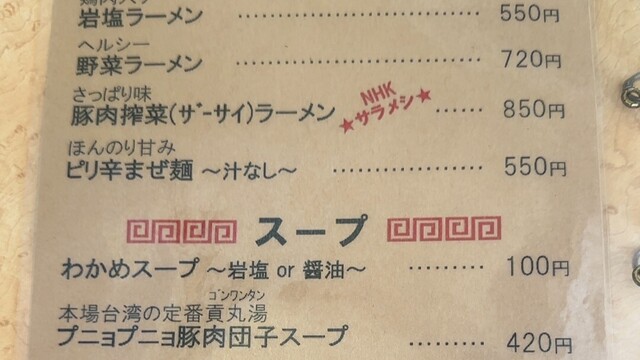 岩塩ラーメン ………………………… 550円
ヘルシー
野菜ラーメン ………………………… 720円
さっぱり味
豚肉搾菜(ザーサイ)ラーメン …… 850円
NHK
★サラメシ★
ほんのり甘み
ピリ辛まぜ麺 ～汁なし～ ……………… 550円
スープ
わかめスープ ～岩塩 or 醤油～ ……… 100円
ゴンワンタン
本場台湾の定番貢丸湯
プニョプニョ豚肉団子スープ ……… 420円